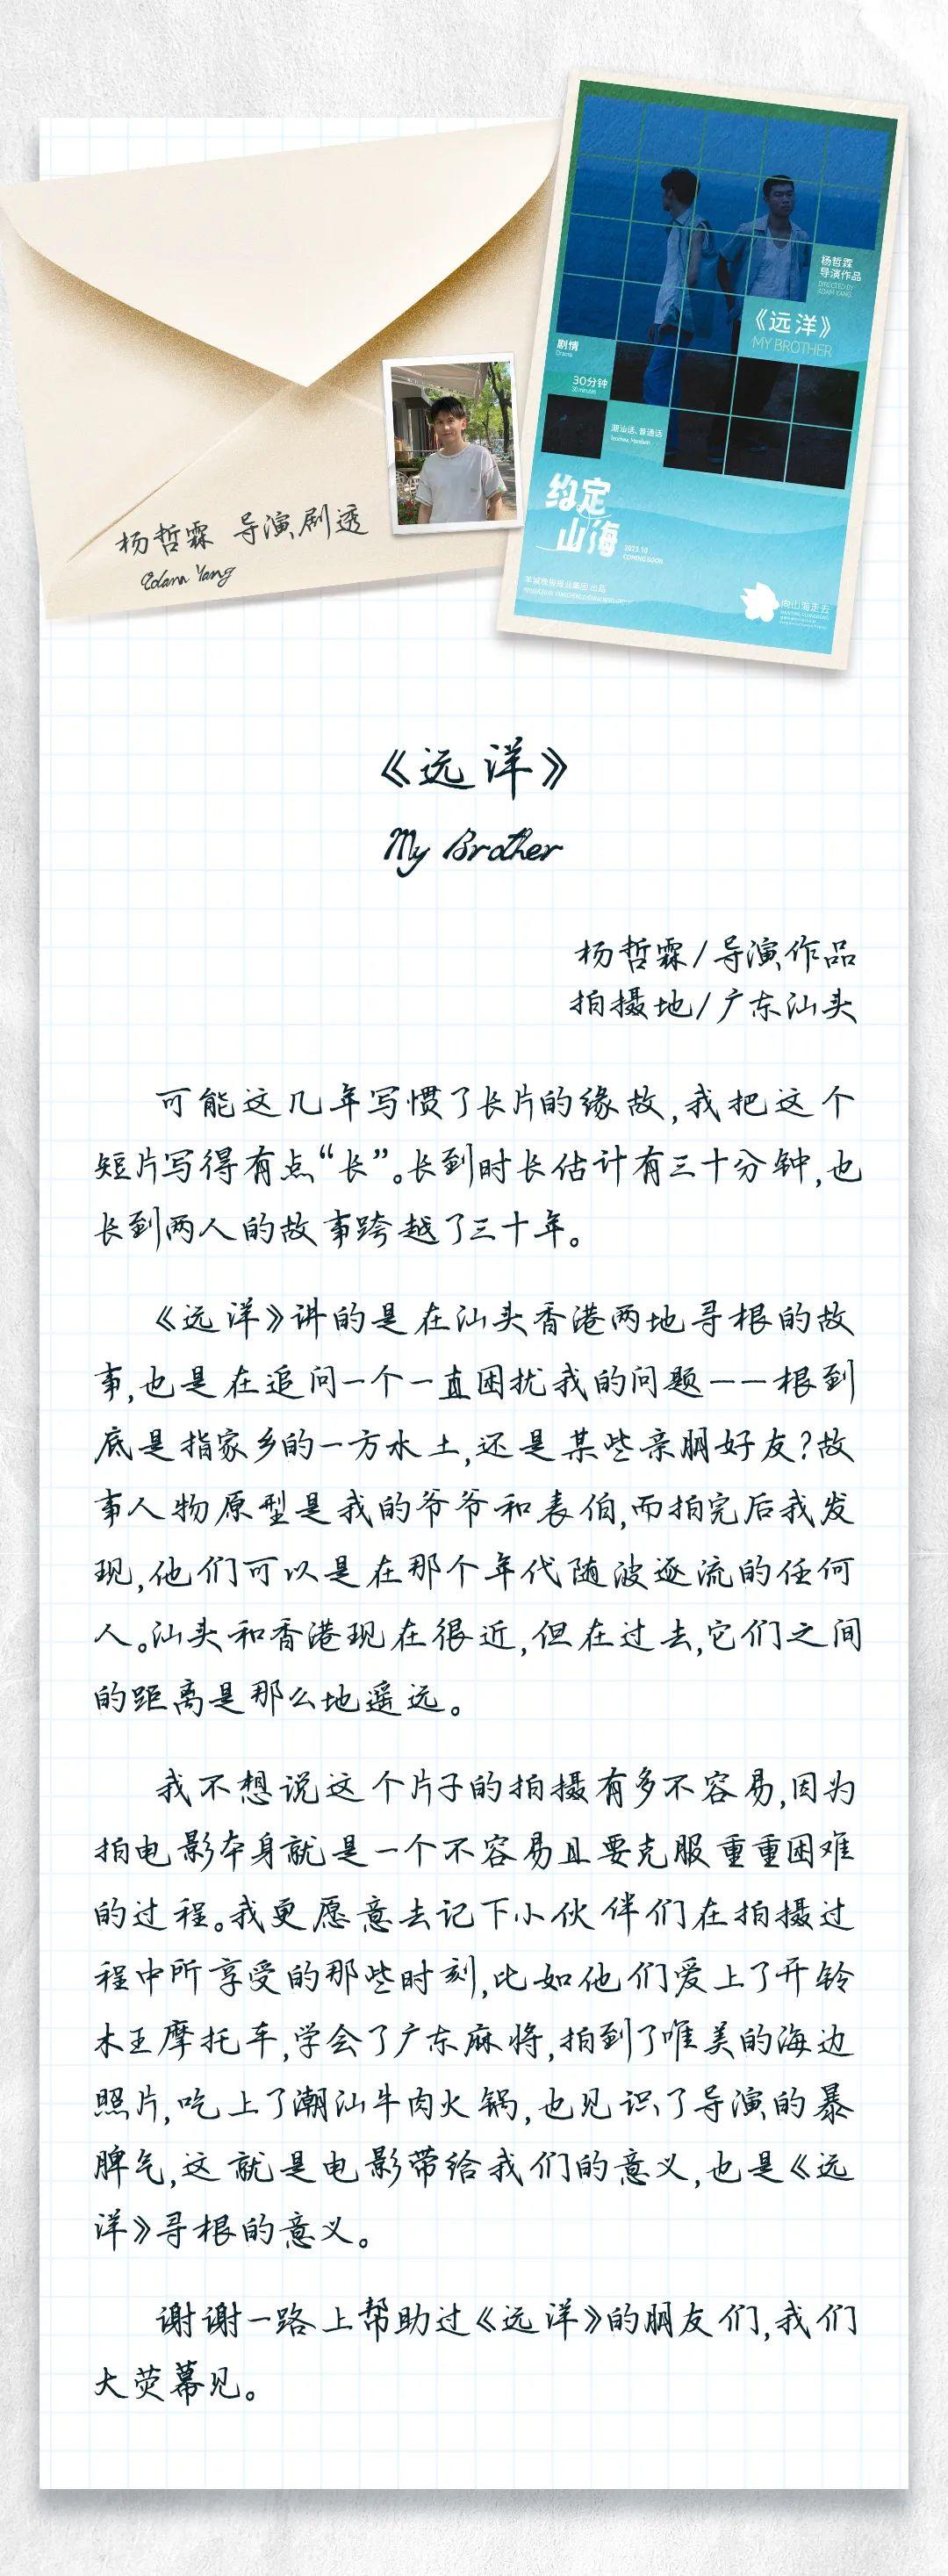 杨哲霖
导演作品
DIRECTED BY
ADAM YANG
《远洋》
MY BROTHER
剧情
Drama
30分钟
30 minutes
潮汕话、普通话
Teochew, Mandarin
约定
山海
2023.10
COMING SOON
羊城晚报报业集团 出品
向山海走去
杨哲霖 导演剧透
《远洋》
My Brother
杨哲霖/导演作品
拍摄地/广东汕头
可能这几年写惯了长片的缘故,我把这个
短片写得有点“长”。长到时长估计有三十分钟,也
长到两人的故事跨越了三十年。
《远洋》讲的是在汕头香港两地寻根的故
事,也是在追问一个一直困扰我的问题——根到
底是指家乡的一方水土,还是某些亲朋好友?故
事人物原型是我的爷爷和表伯,而拍完后我发
现,他们可以是在那个年代随波逐流的任何
人。汕头和香港现在很近,但在过去,它们之间
的距离是那么地遥远。
我不想说这个片子的拍摄有多不容易,因为
拍电影本身就是一个不容易且要克服重重困难
的过程。我更愿意去记下小伙伴们在拍摄过
程中所享受的那些时刻,比如他们爱上了开铃
木王摩托车,学会了广东麻将,拍到了唯美的海边
照片,吃上了潮汕牛肉火锅,也见识了导演的暴
脾气,这就是电影带给我们的意义,也是《远
洋》寻根的意义。
谢谢一路上帮助过《远洋》的朋友们,我们
大荧幕见。